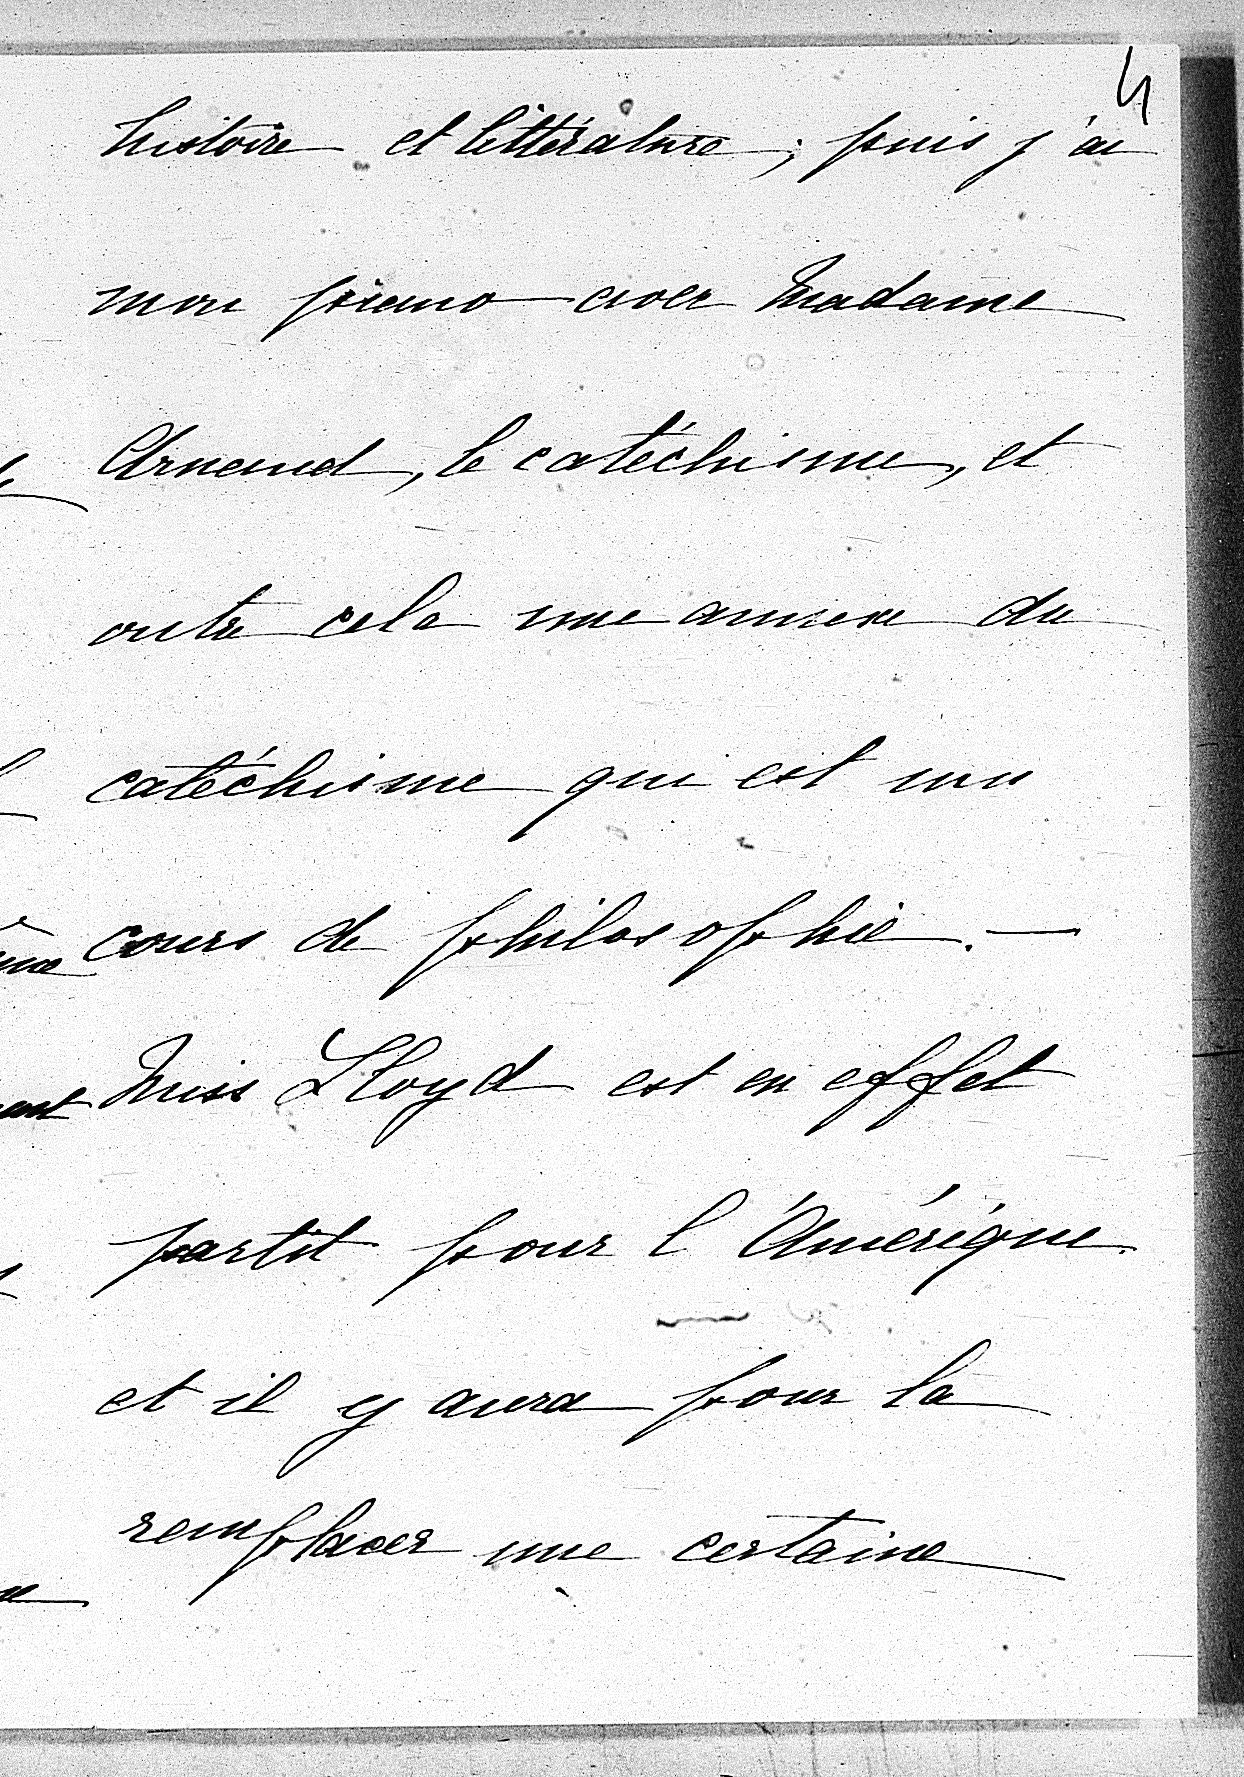 4
histoire et littérature ; puis j'ai
mon piano avec Madame
Arnaud, le catéchisme, et
outre cela une annexe du
catéchisme qui est un
cours de philosophie. —
Miss Lloyd est en effet
partit pour l'Amérique
et il y aura pour la
remplacer une certaine